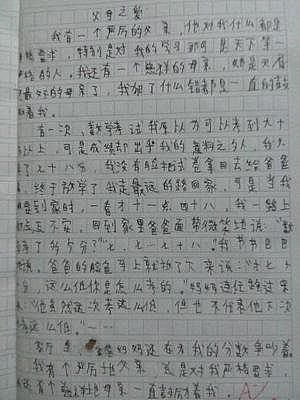 父母之爱
我有一个严厉的父亲，他对我什么都是
要求，特别是对我的学习那可是天下第一
的人。我还有一个慈祥的母亲，
最好的母亲了，我做了什么错都是一直的鼓
着我。
有一次，数学考试我原以为可以考到九十
以上，可是成绩却出乎我的意料之外，我
了七十八分，我没有脸把试卷拿回去给爸爸
终于放学了我走最远的路回家，可是当我
到家时，一看才十一点四十八，我一路上
忐忑不安，回到家里爸爸面带微笑地说："数
考了多少分？""七、七一七十八。"我书包
爸爸的脸色马上就拉了下来说："才七十
分，这么低你是怎么考的。"妈妈连忙
："他虽然这次考这么低，但也不代表他下次
考这么低。"……
客厅里，爸爸妈妈还在为我的分数争吵着。
我有个严厉的父亲，总是对我严格要求，
还有个慈祥的母亲一直鼓励着我。